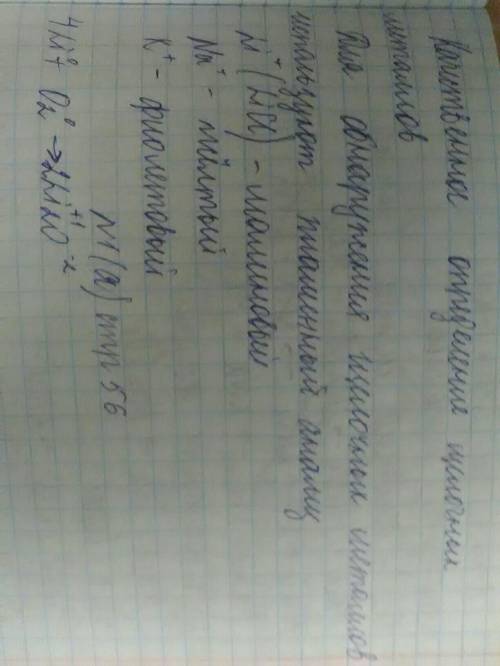 Качественное определение щелочных
металлов
Для обнаружения щелочных металлов
используют пламенный анализ
Li⁺ (LiCl) - малиновый
Na⁺ - жёлтый
K⁺ - фиолетовый
N1(а) стр 56
4Li⁰ + O₂⁰ → 2Li₂⁺¹O⁻²